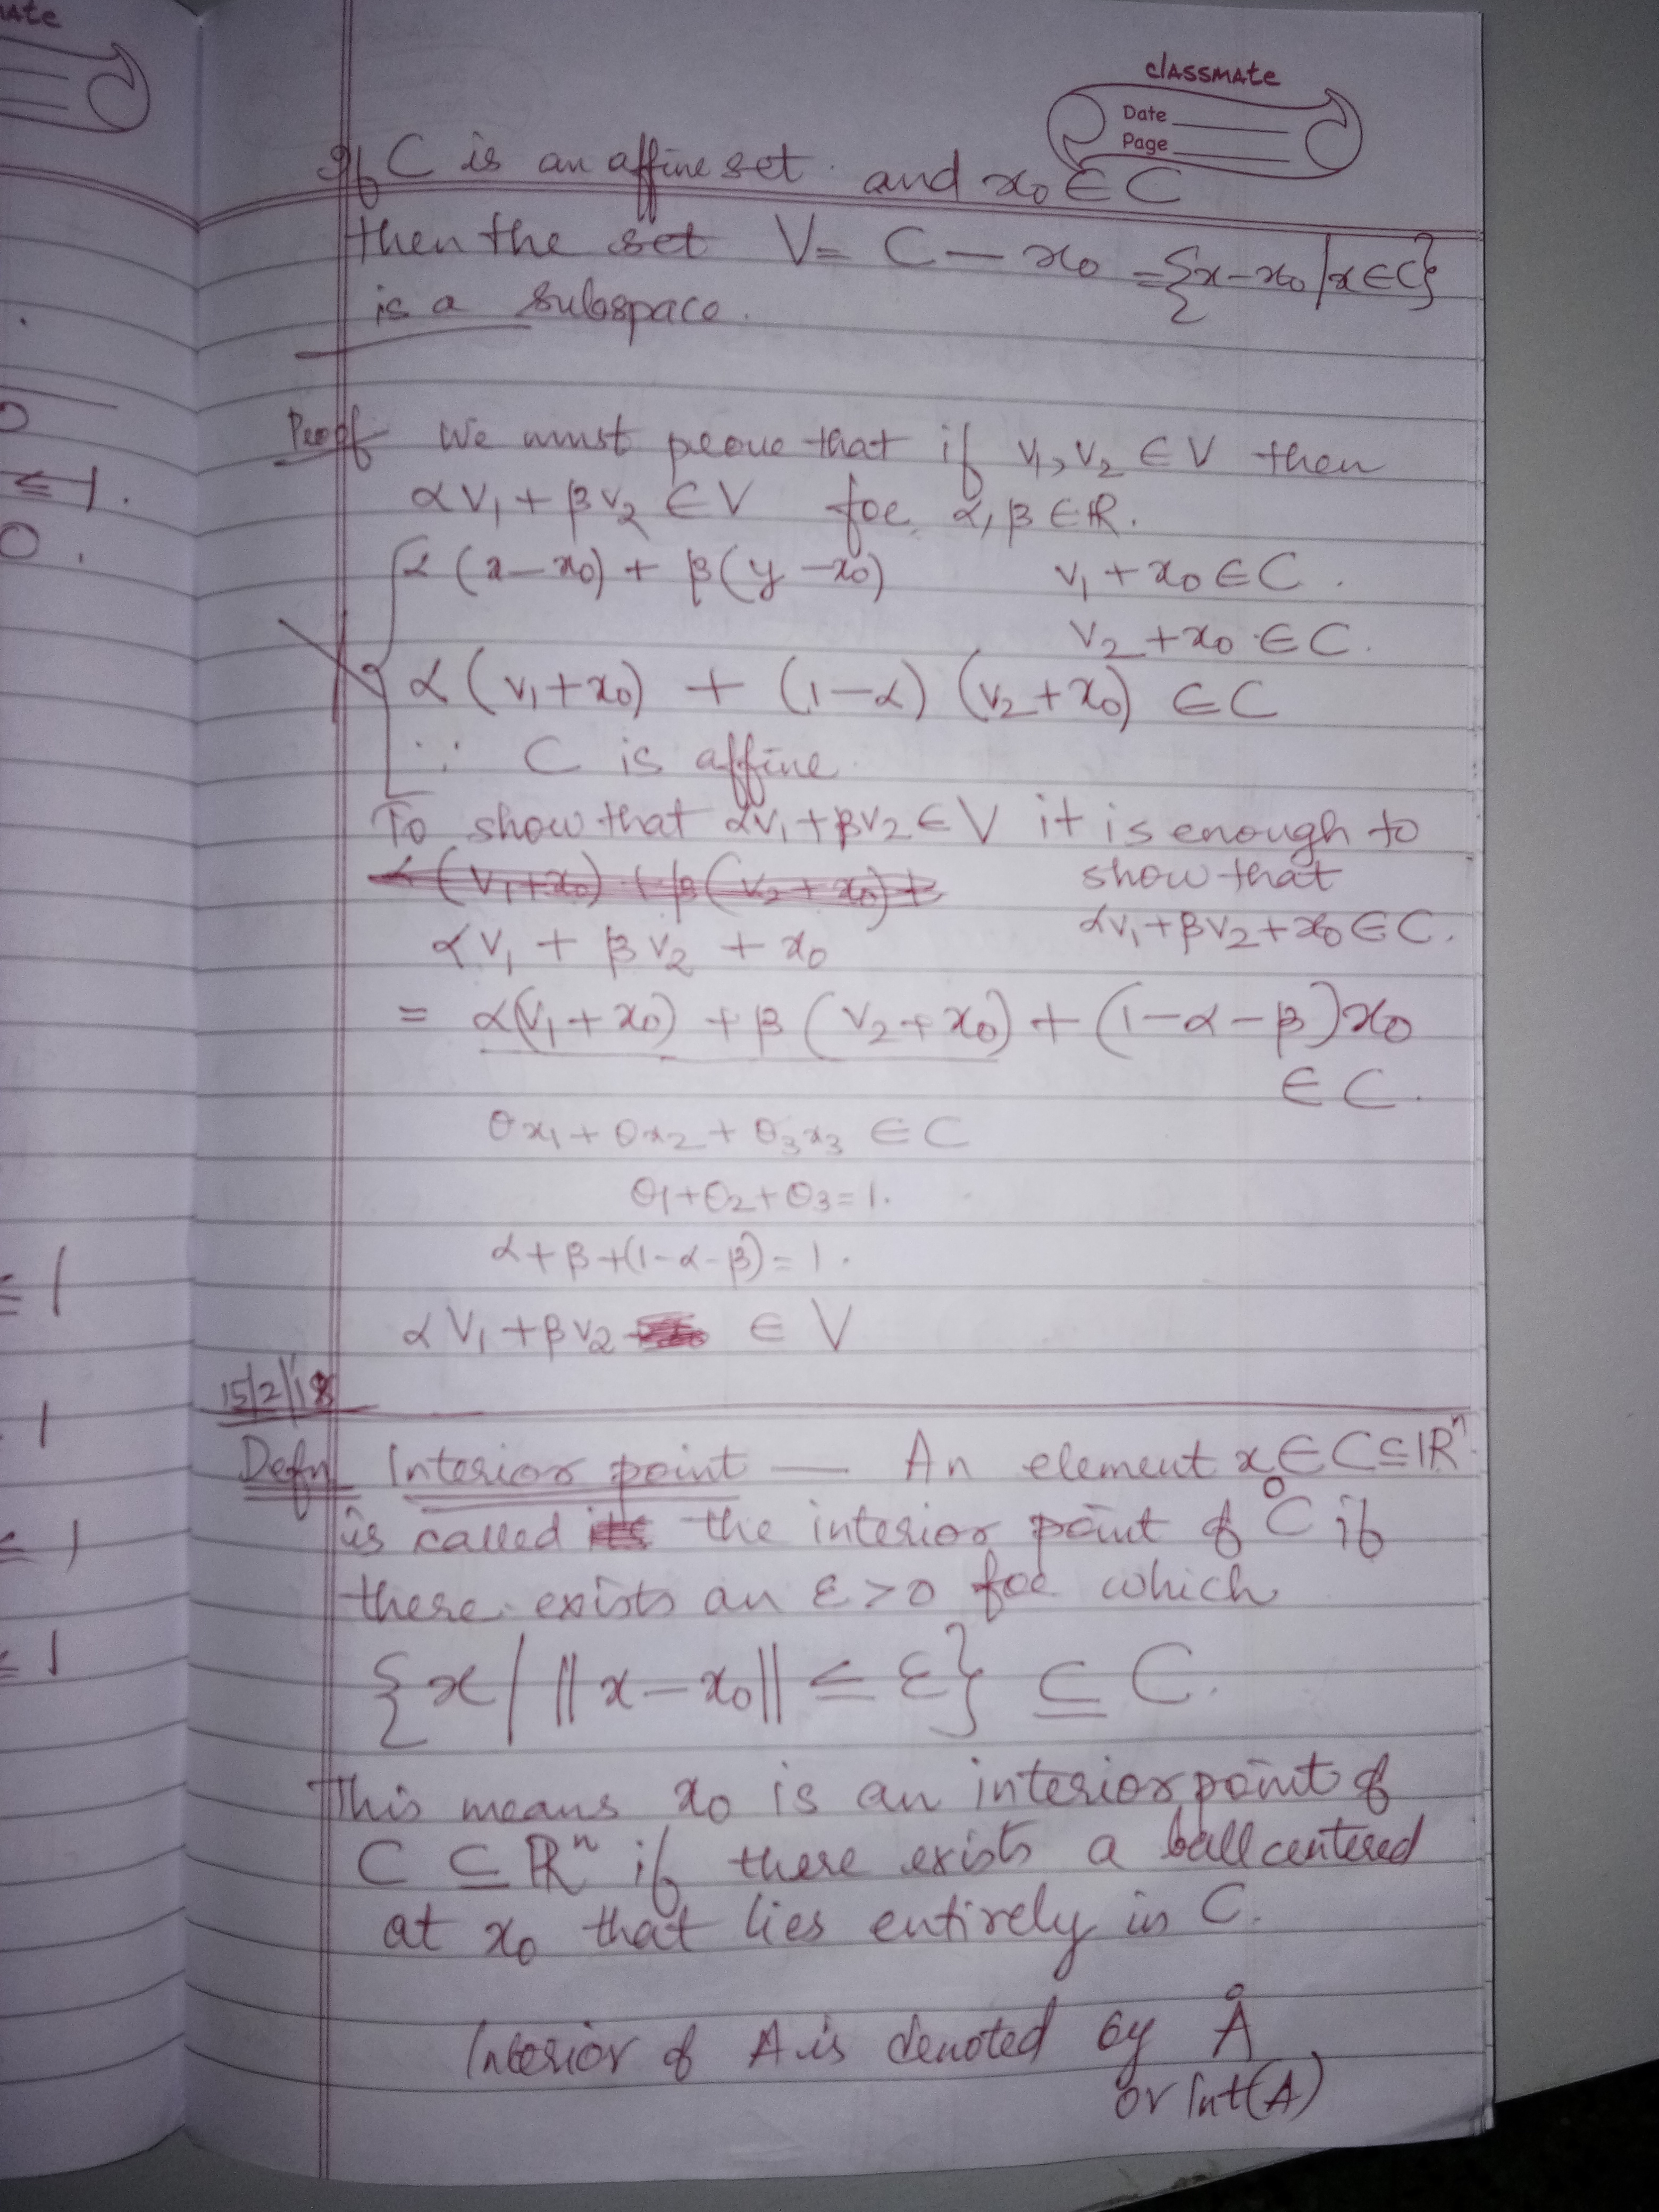 mate
classmate
Date
Page
If C is an affine set and x₀ ∈ C
then the set V = C − x₀ = {x − x₀ | x ∈ C}
is a subspace.
Proof We must prove that if v₁, v₂ ∈ V then
αv₁ + βv₂ ∈ V for α, β ∈ ℝ.
α(x − x₀) + β(y − x₀) v₁ + x₀ ∈ C.
v₂ + x₀ ∈ C.
α(v₁ + x₀) + (1 − α)(v₂ + x₀) ∈ C
∵ C is affine
To show that αv₁ + βv₂ ∈ V it is enough to
show that
αv₁ + βv₂ + x₀ ∈ C.
αv₁ + βv₂ + x₀
= α(v₁ + x₀) + β(v₂ + x₀) + (1 − α − β)x₀
∈ C.
θx₁ + θx₂ + θ₃x₃ ∈ C
θ₁ + θ₂ + θ₃ = 1.
α + β + (1 − α − β) = 1.
αv₁ + βv₂ ∈ V
15/2/18
Defn Interior point — An element x ∈ C ⊆ ℝⁿ
is called the interior point of C̊ if
there exists an ε > 0 for which
{x / ||x − x₀|| ≤ ε} ⊆ C.
This means x₀ is an interior point of
C ⊆ ℝⁿ if there exists a ball centered
at x₀ that lies entirely in C.
Interior of A is denoted by Å
or Int(A)